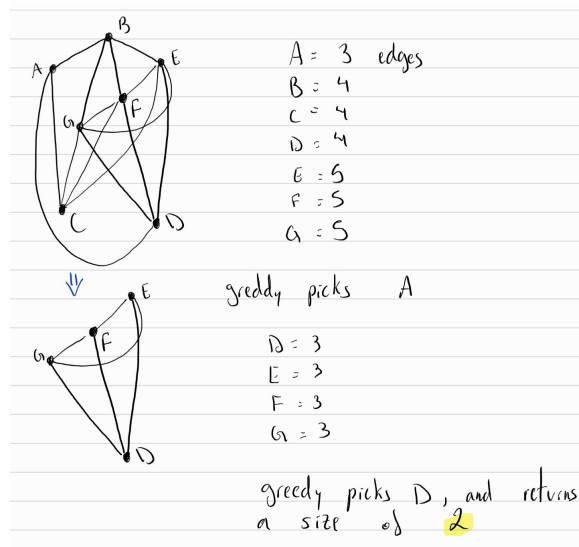 B
A
E
F
G
C
D
A = 3 edges
B = 4
C = 4
D = 4
E = 5
F = 5
G = 5
greddy picks A
E
F
G
D
D = 3
E = 3
F = 3
G = 3
greedy picks D, and returns
a size of 2